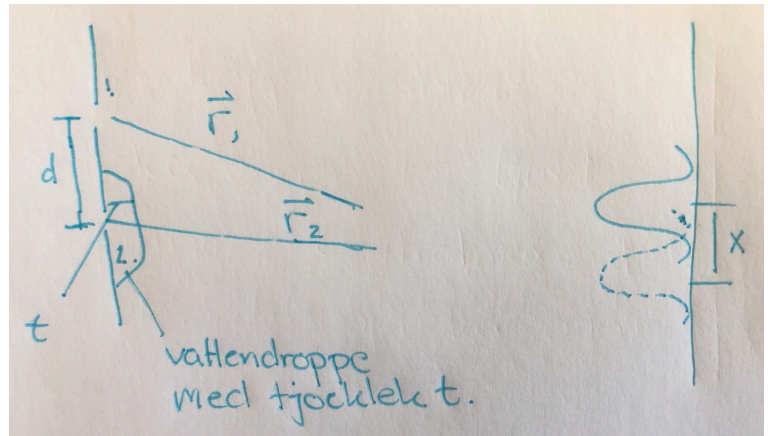 1.
r⃗₁
d
r⃗₂
2.
x
t
vattendroppe
med tjocklek t.